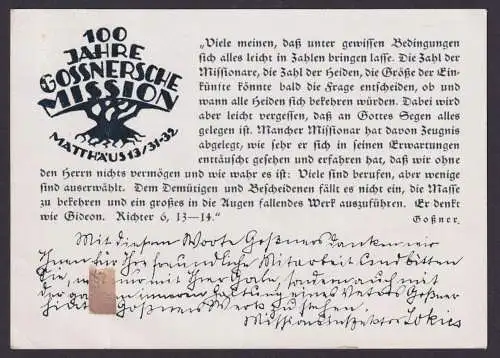 100
JAHRE
GOSSNERSCHE
MISSION
MATTHÄUS 13/31-32
„Viele meinen, daß unter gewissen Bedingungen
sich alles leicht in Zahlen bringen lasse. Die Zahl der
Missionare, die Zahl der Heiden, die Größe der Ein-
künfte könnte bald die Frage entscheiden, ob und
wann alle Heiden sich bekehren würden. Dabei wird
aber leicht vergessen, daß an Gottes Segen alles
gelegen ist. Mancher Missionar hat davon Zeugnis
abgelegt, wie sehr er sich in seinen Erwartungen
enttäuscht gesehen und erfahren hat, daß wir ohne
den Herrn nichts vermögen und wie wahr es ist: Viele sind berufen, aber wenige
sind auserwählt. Dem Demütigen und Bescheidenen fällt es nicht ein, die Masse
zu bekehren und ein großes in die Augen fallendes Werk auszuführen. Er denkt
wie Gideon. Richter 6, 13—14.“
Goßner.
Mit diesem Worte Goßners danken wir
Ihnen für Ihre freundliche Mitarbeit und bitten
Sie, nur mit Ihrer Gabe, sondern auch mit
der inneren Haltung eines Vaters Goßner
Goßners Werk zu stehen.
Missionsinspektor Lokies